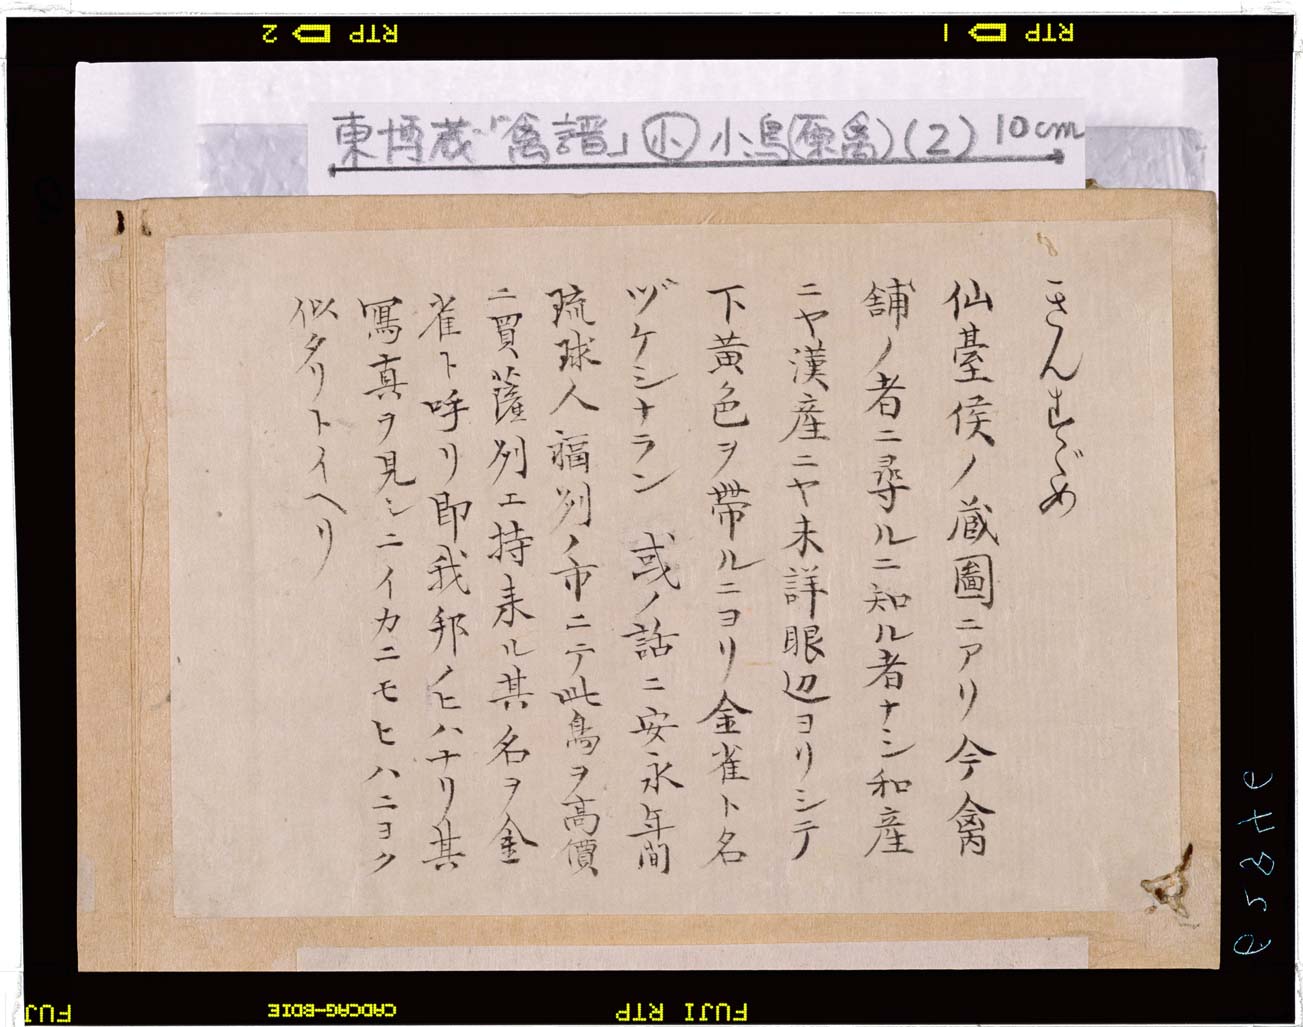 RTP 2
RTP 1
東博蔵「禽譜」小 小鳥(原禽)(2) 10cm
きんすゞめ
仙臺侯ノ蔵圖ニアリ今禽
舖ノ者ニ尋ルニ知ル者ナシ和産
ニヤ漢産ニヤ未詳眼辺ヨリシテ
下黄色ヲ帯ルニヨリ金雀ト名
ヅケシナラン 或ノ話ニ安永年間
琉球人福州ノ市ニテ此鳥ヲ高價
ニ買薩州エ持来ル其名ヲ金
雀ト呼リ即我邦ノヒハナリ其
寫真ヲ見シニイカニモヒハニヨク
似タリトイヘリ
FUJI RTP
FUJ